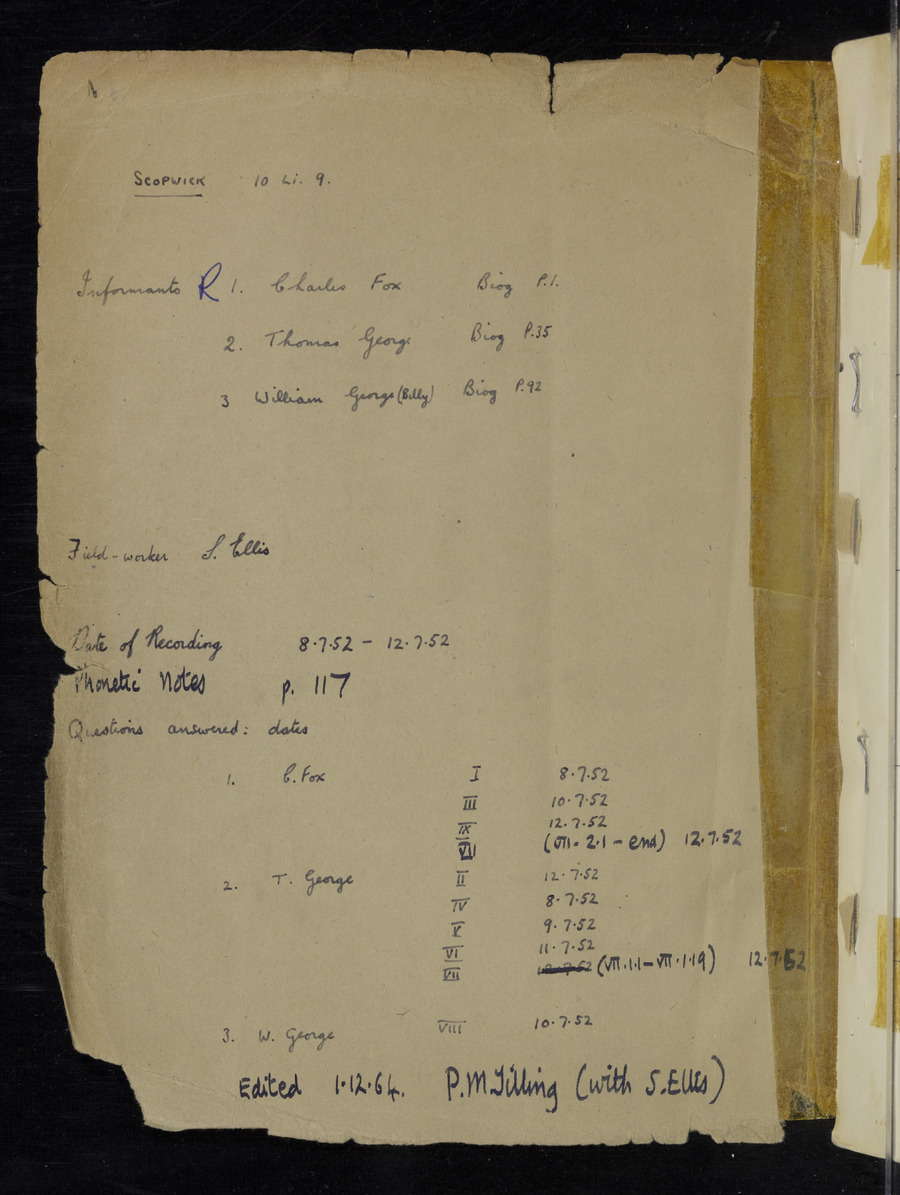 SCOPWICK 10 Li. 9.
Informants R 1. Charles Fox Biog P.1.
2. Thomas George Biog P.35
3 William George (Billy) Biog P.92
Field-worker S. Ellis
Date of Recording 8.7.52 - 12.7.52
Phonetic Notes p. 117
Questions answered: dates
1. C. Fox I 8.7.52
III 10.7.52
IX 12.7.52
VII (VII. 2.1 - end) 12.7.52
2. T. George II 12.7.52
IV 8.7.52
V 9.7.52
VI 11.7.52
VII 12.7.52 (VII.1.1 - VII.1.19) 12.7.52
3. W. George VIII 10.7.52
Edited 1.12.64. P.M.Tilling (with S.Ellis)